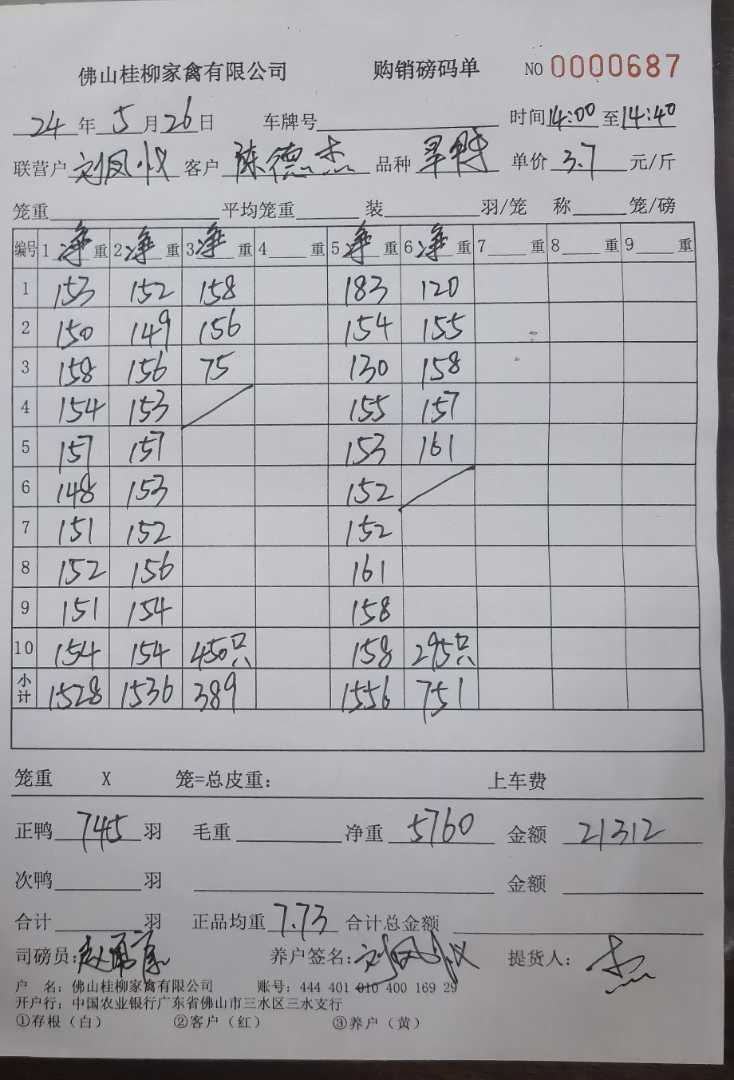 佛山桂柳家禽有限公司 购销磅码单 NO 0000687
24年5月26日 车牌号 时间14:00至14:40
联营户 刘凤仪 客户 陈德杰 品种 单价 3.7 元/斤
笼重 平均笼重 装 羽/笼 称 笼/磅
编号 1净重 2净重 3净重 4 重 5净重 6净重 7 重 8 重 9 重
1 153 152 158 183 120
2 150 149 156 154 155
3 158 156 75 130 158
4 154 153 155 157
5 157 157 153 161
6 148 153 152
7 151 152 152
8 152 156 161
9 151 154 158
10 154 154 450只 158 295只
小计 1528 1536 389 1556 751
笼重 X 笼=总皮重: 上车费
正鸭 745 羽 毛重 净重 5760 金额 21312
次鸭 羽 金额
合计 羽 正品均重 7.73 合计总金额
司磅员: 养户签名: 刘凤仪 提货人: 杰
户 名: 佛山桂柳家禽有限公司 账号: 444 401 010 400 169 29
开户行: 中国农业银行广东省佛山市三水区三水支行
①存根（白） ②客户（红） ③养户（黄）